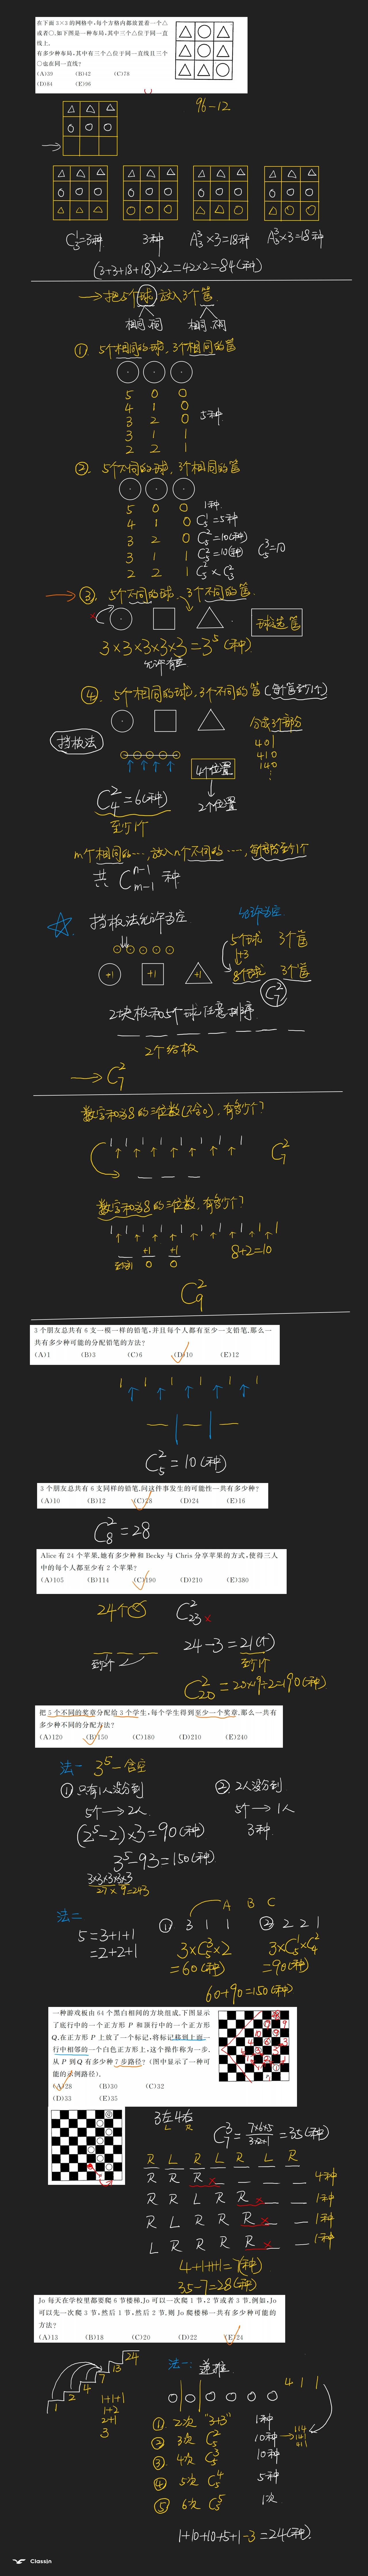 在下面 3×3 的网格中,每个方格内都放置着一个△
或者○,如下图是一种布局,其中三个△位于同一直
线上.
有多少种布局,其中有三个△位于同一直线且三个
○也在同一直线?
(A)39 (B)42 (C)78
(D)84 (E)96
96-12
C₃¹=3种 3种 A₃³×3=18种 A₃³×3=18种
(3+3+18+18)×2=42×2=84(种)
→把5个球放入3个筐
相同.不同 相同.不同
① 5个相同的球,3个相同的筐
5 0 0
4 1 0
3 2 0
3 1 1
2 2 1
5种
② 5个不同的球,3个相同的筐
5 0 0 1种
4 1 0 C₅¹=5种
3 2 0 C₅²=10(种)
3 1 1 C₅²=10(种) C₅³=10
2 2 1 C₅²×C₃²
③ 5个不同的球,3个不同的筐
球选筐
3×3×3×3×3=3⁵(种)
允许有空
④ 5个相同的球,3个不同的筐(每个筐至少1个)
挡板法
分成3个部分
401
410
140
4个位置
2个位置
C₄²=6(种)
至少1个
m个相同的…,放入n个不同的……,每个筐至少1个
共 C_{m-1}^{n-1} 种.
挡板法允许为空
允许为空
5个球 3个筐
+3
8个球 3个筐
C₇²
+1 +1 +1
2块板和5个球任意排序.
2个给板
→ C₇²
数字和为8的三位数(不含0),有多少个?
C₇²
数字和为8的三位数,有多少个?
+1 +1
至少1 0 0
8+2=10
C₉²
3 个朋友总共有 6 支一模一样的铅笔,并且每个人都有至少一支铅笔.那么一
共有多少种可能的分配铅笔的方法?
(A)1 (B)3 (C)6 (D)10 (E)12
C₅²=10(种)
3 个朋友总共有 6 支同样的铅笔,问这件事发生的可能性一共有多少种?
(A)10 (B)12 (C)28 (D)24 (E)16
C₈²=28
Alice 有 24 个苹果,她有多少种和 Becky 与 Chris 分享苹果的方式,使得三人
中的每个人都至少有 2 个苹果?
(A)105 (B)114 (C)190 (D)210 (E)380
24个
C₂₃² ×
24-3=21(个)
至少2个 至少1个
C₂₀²=20×19÷2=190(种)
把 5 个不同的奖章分配给 3 个学生,每个学生得到至少一个奖章.那么一共有
多少种不同的分配方法?
(A)120 (B)150 (C)180 (D)210 (E)240
法一 3⁵-含空
①只有1人没分到 ②2人没分到
5个→2人 5个→1人
(2⁵-2)×3=90(种) 3种.
3⁵-93=150(种)
3×3×3×3×3
27×9=243
法二
A B C
5=3+1+1 ① 3 1 1 ② 2 2 1
=2+2+1 3×C₅³×2 3×C₅¹×C₄²
=60(种) =90(种)
60+90=150(种)
一种游戏板由 64 个黑白相间的方块组成,下图显示
了底行中的一个正方形 P 和顶行中的一个正方形
Q.在正方形 P 上放了一个标记,将标记移到上面一
行中相邻的一个白色正方形上,这个操作称为一步.
从 P 到 Q 有多少种 7 步路径?(图中显示了一种可
能的示例路径).
(A)28 (B)30 (C)32
(D)33 (E)35
3左4右
L R
C₇³=7×6×5/3×2×1=35(种)
R L R L R L R
R R R × 4种
R R L R R × 1种
R L R R R × 1种
L R R R R × 1种
4+1+1+1=7(种)
35-7=28(种)
Jo 每天在学校里都要爬 6 节楼梯,Jo 可以一次爬 1 节,2 节或者 3 节.例如,Jo
可以先一次爬 3 节,然后 1 节,然后 2 节.则 Jo 爬楼梯一共有多少种可能的
方法?
(A)13 (B)18 (C)20 (D)22 (E)24
1 2 4 7 13 24
1+1+1
1+2
2+1
3
法一:递推
4 1 1
① 2次 "3+3" 1种
② 3次 C₅² 10种 → 114 141 411
③ 4次 C₅³ 10种
④ 5次 C₅⁴ 5种
⑤ 6次 C₅⁵ 1次
1+10+10+5+1-3=24(种).
ClassIn